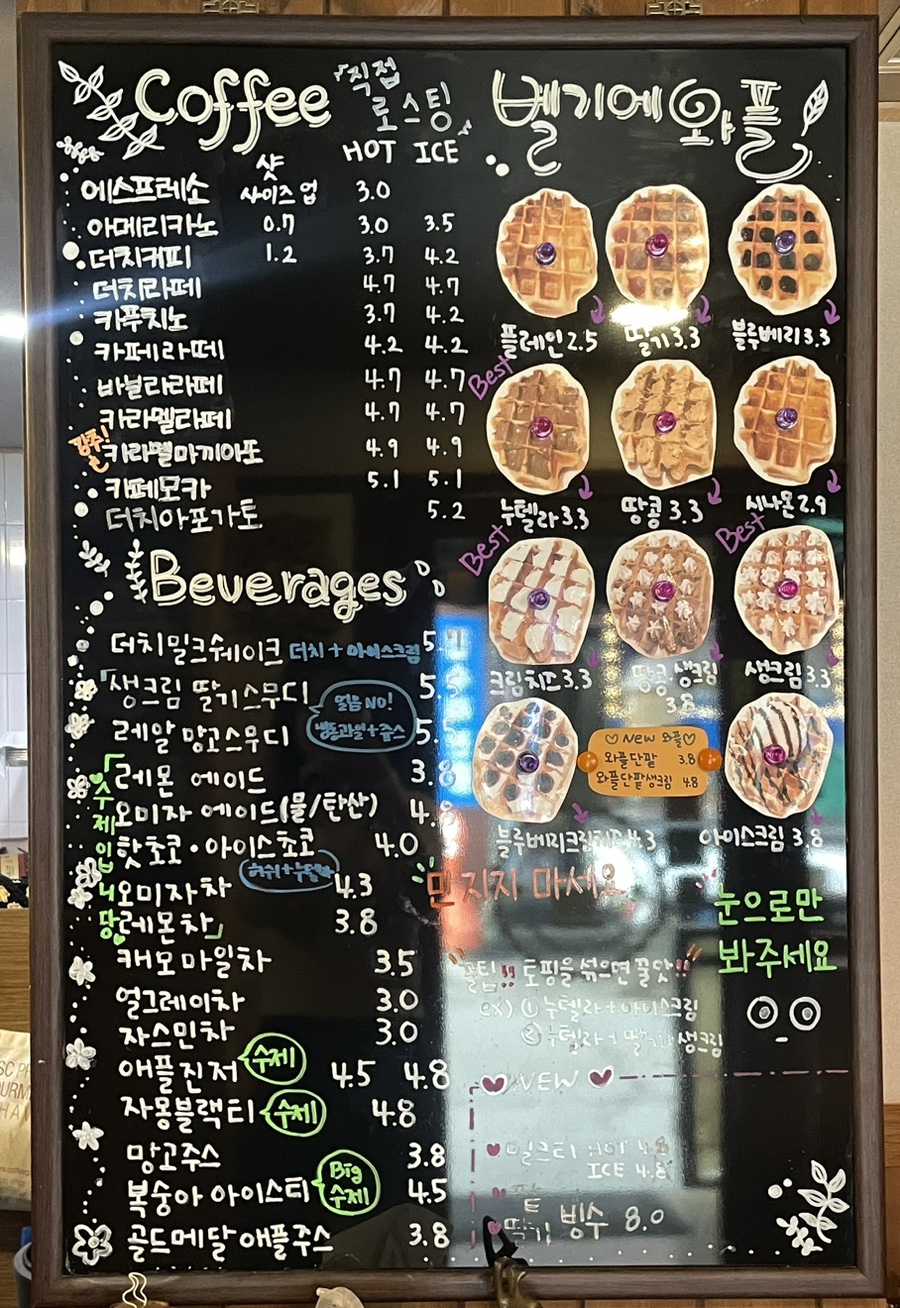 Coffee
「직접
로스팅」
HOT ICE
샷
사이즈 업
에스프레소 3.0
아메리카노 0.7 3.0 3.5
더치커피 1.2 3.7 4.2
더치라떼 4.7 4.7
카푸치노 3.7 4.2
카페라떼 4.2 4.2
바닐라라떼 4.7 4.7
카라멜라떼 4.7 4.7
강추!
카라멜마끼아또 4.9 4.9
카페모카 5.1 5.1
더치아포가토 5.2
Beverages
더치밀크쉐이크 더치+아이스크림
「생크림 딸기스무디
얼음 NO!
냉동과일+주스
레알 망고스무디
「수제입니당」
레몬 에이드
오미자 에이드(물/탄산)
핫초코·아이스초코 4.0
오미자차 4.3
레몬차 3.8
캐모마일차 3.5
얼그레이차 3.0
자스민차 3.0
애플진저 수제 4.5 4.8
자몽블랙티 수제 4.8
망고주스 3.8
복숭아 아이스티 Big 수제 4.5
골드메달애플주스 3.8
벨기에 와플
플레인 2.5
딸기 3.3
블루베리 3.3
Best
누텔라 3.3
땅콩 3.3
시나몬 2.9
Best
크림치즈 3.3
땅콩생크림
3.8
Best
생크림 3.3
블루베리크림치즈 4.3
♡ NEW 와플 ♡
와플단팥 3.8
와플단팥생크림 4.8
아이스크림 3.8
만지지 마세요
눈으로만
봐주세요
꿀팁!! 토핑을 섞으면 꿀맛!!
ex) ① 누텔라+아이스크림
② 누텔라+딸기+생크림
NEW
밀크티 HOT 4.8
ICE 4.8
팥
딸기 빙수 8.0